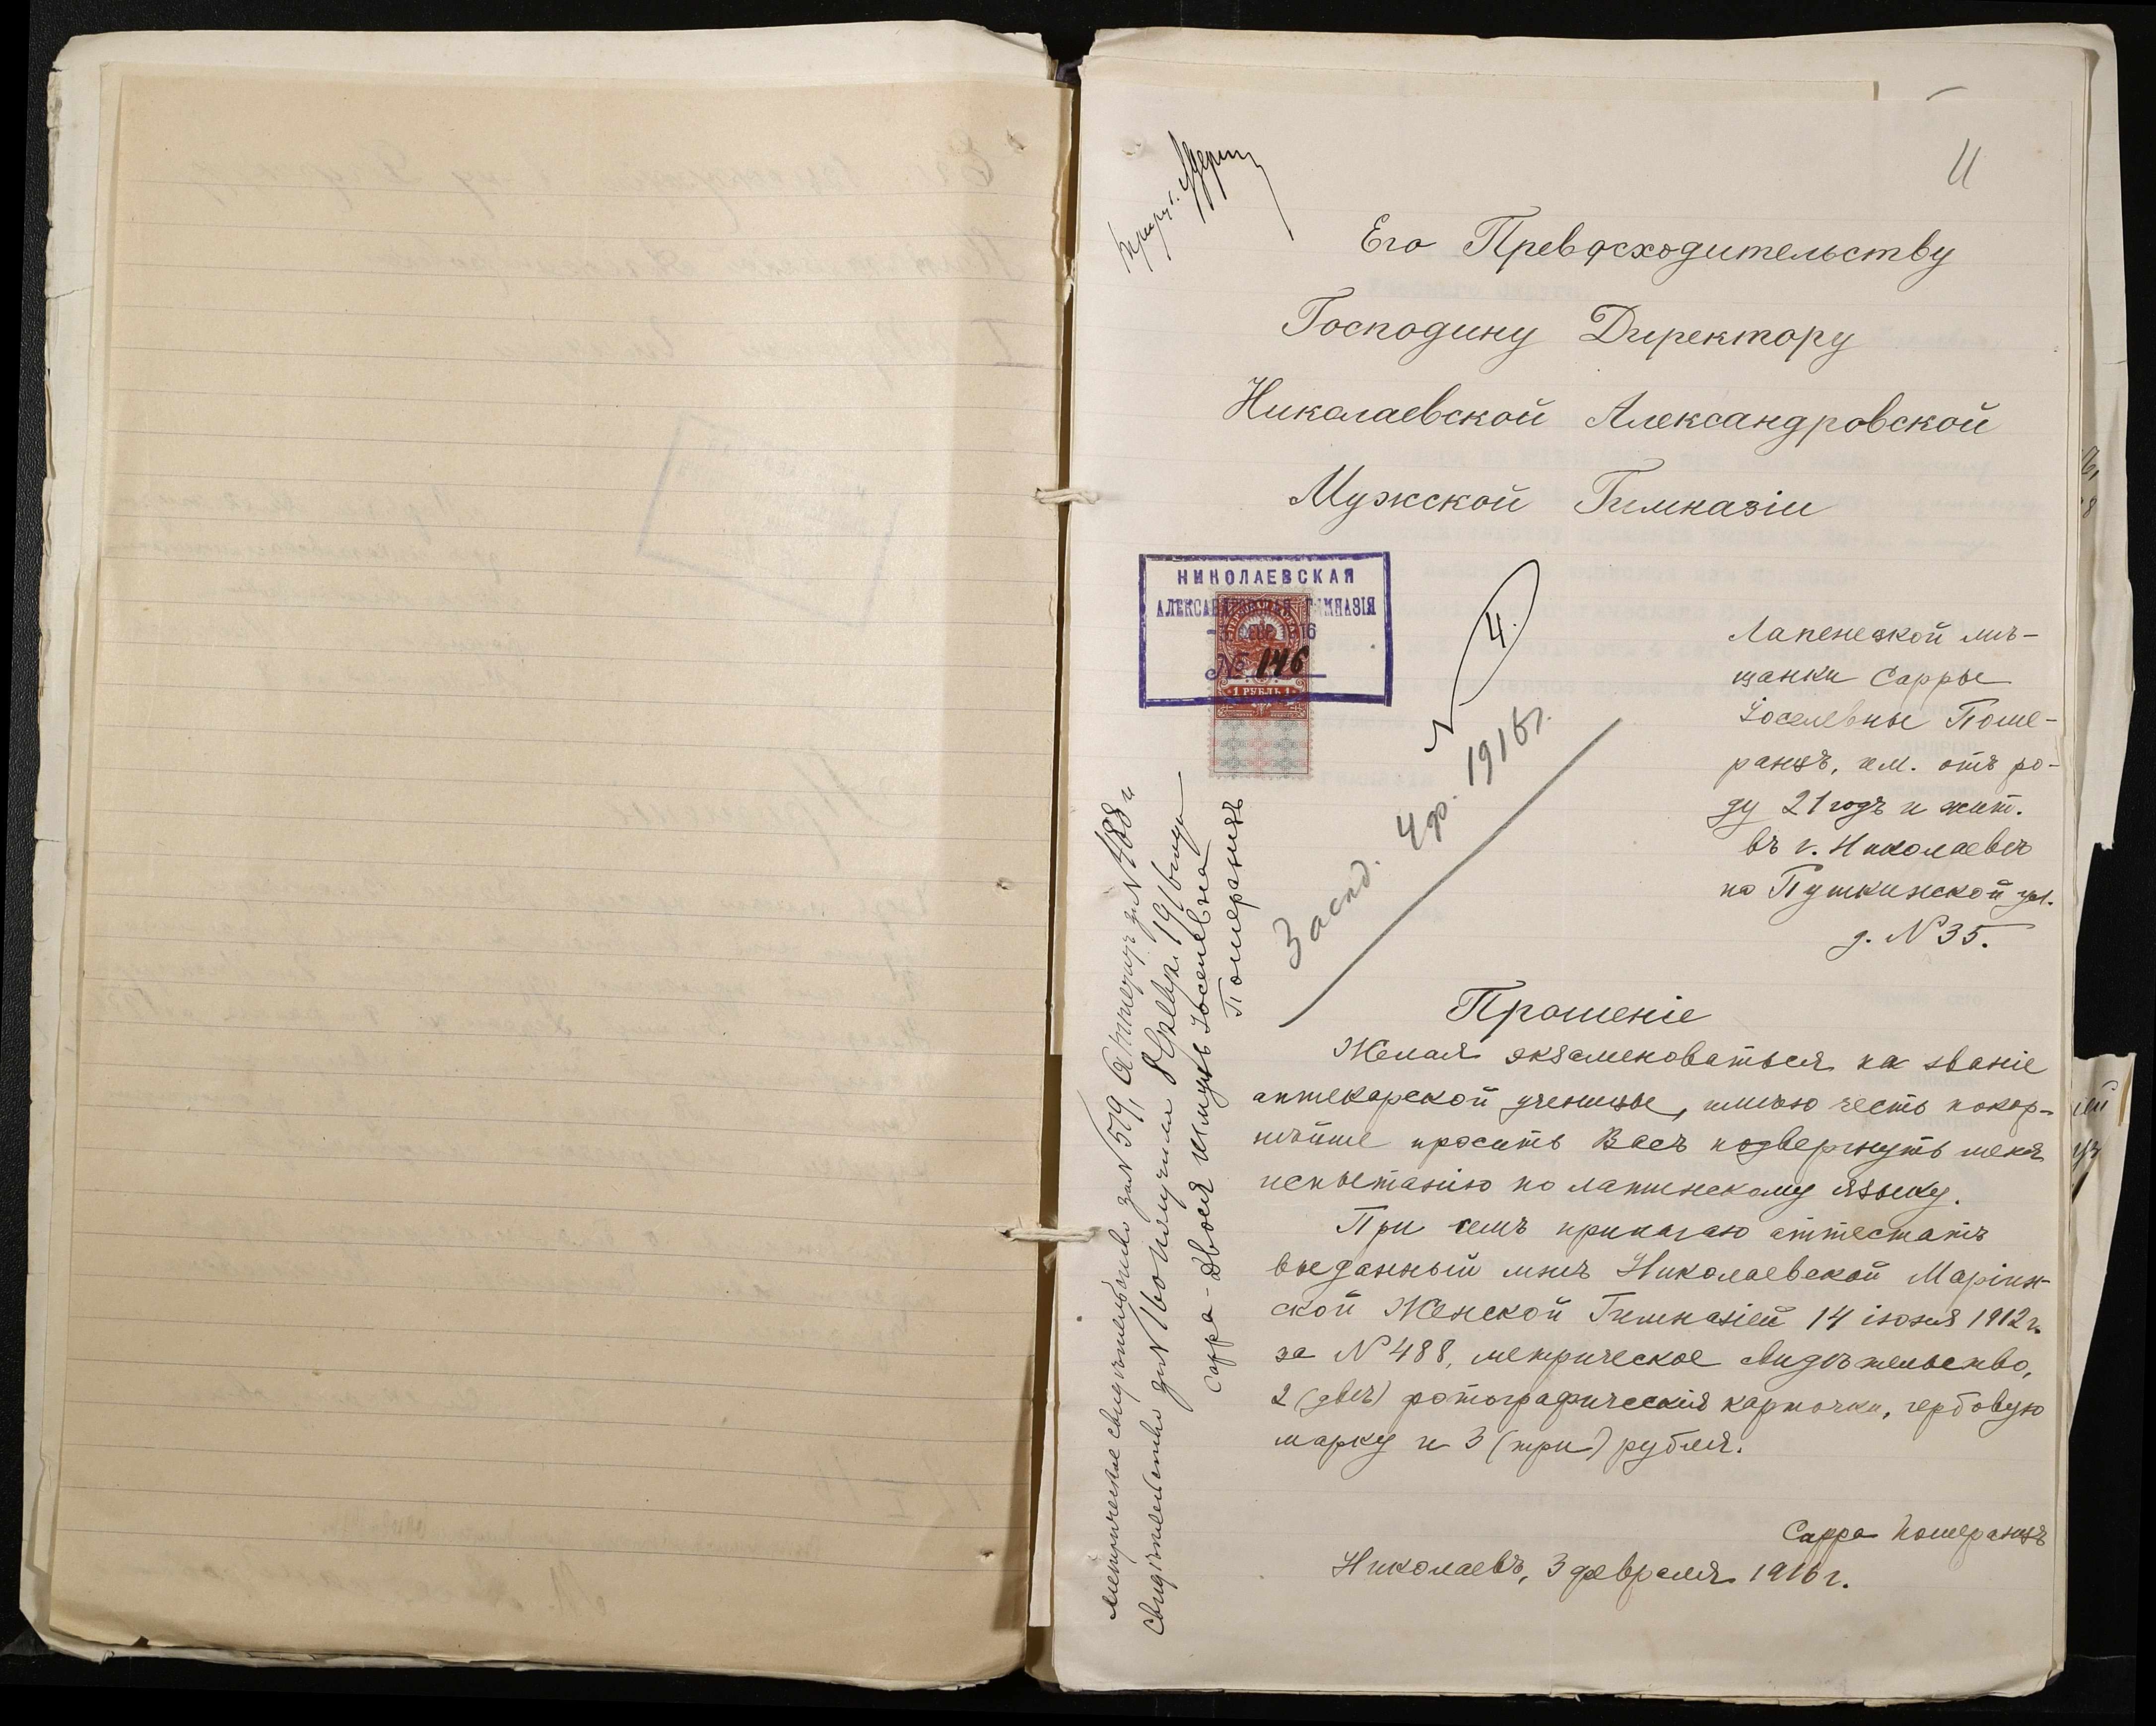 11
Его Превосходительству
Господину Директору
Николаевской Александровской
Мужской Гимназіи
НИКОЛАЕВСКАЯ
АЛЕКСАНДРОВСКАЯ ГИМНАЗІЯ
№ 146
1 РУБЛЬ 1
4.
мѣ-
щанки Сарры
Іоселевны Поме-
ранцъ, им. отъ ро-
ду 21 годъ и жит.
въ г. Николаевѣ
по Пушкинской ул.
д. N 35.
4 ф. 1916 г.
Прошеніе
Желая экзаменоваться на званіе
аптекарской ученицы, имѣю честь покор-
нѣйше просить Васъ подвергнуть меня
испытанію по латинскому языку.
При семъ прилагаю аттестатъ
выданный мнѣ Николаевской Маріин-
ской Женской Гимназіей 14 іюня 1912 г.
за N 488, метрическое свидѣтельство,
2 (двѣ) фотографическія карточки, гербовую
марку и 3 (три) рубля.
Сарра Померанцъ
Николаевъ, 3 февраля 1916 г.
метрическое свидѣтельство за N 579, Аттестатъ за N 488 и
свидѣтельство за N 160 получила 8 февр. 1916 года
Сарра-Двося Іоселевна
Померанцъ